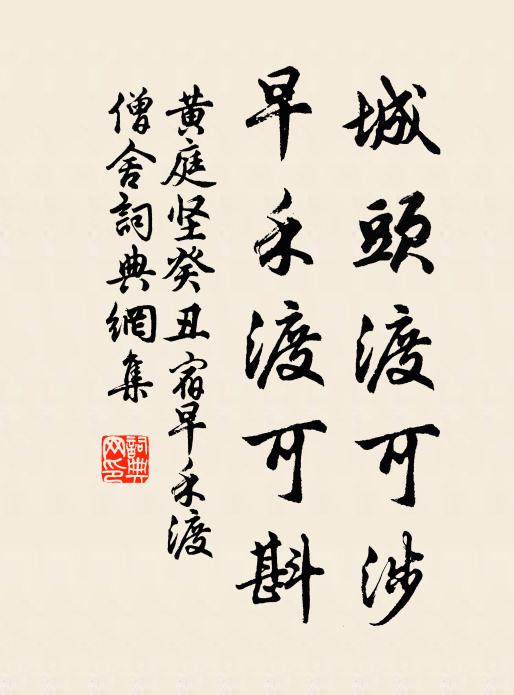 城頭渡可涉
早禾渡可斟
黄庭坚癸丑宿早禾渡
僧舍詞典網集
詞典网印